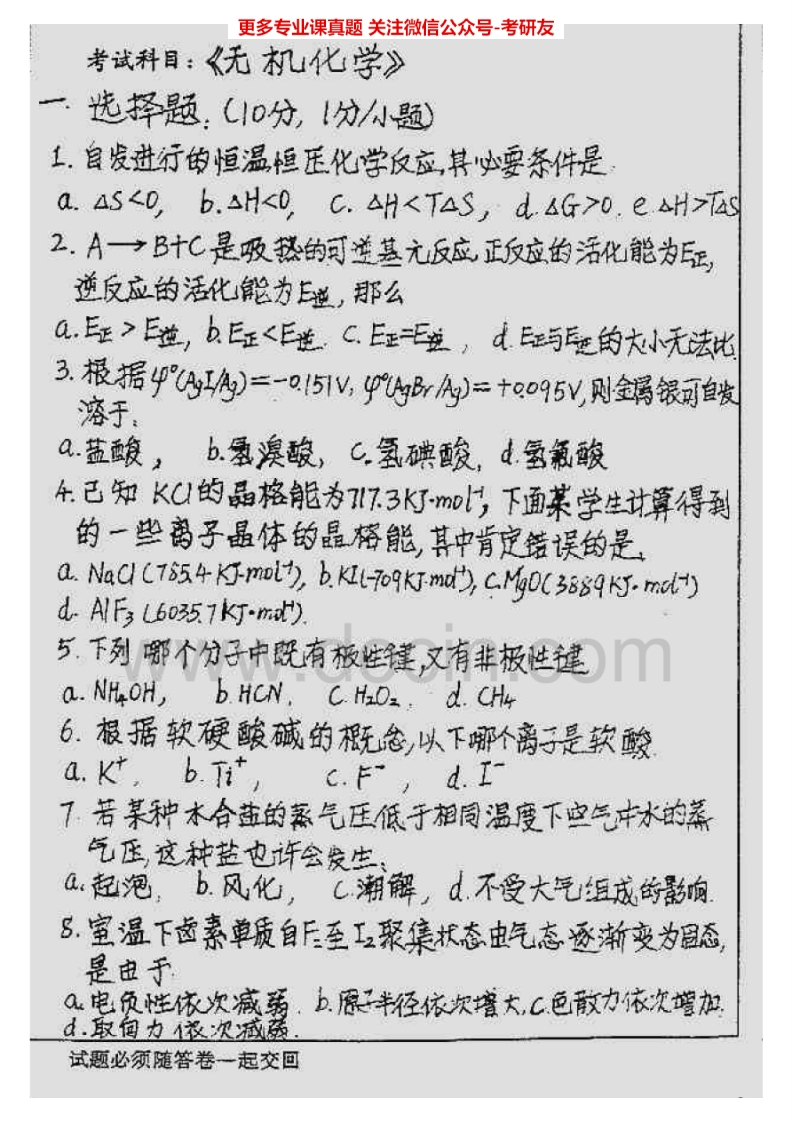 更多专业课真题 关注微信公众号-考研友
考试科目：《无机化学》
一. 选择题：(10分, 1分/小题)
1. 自发进行的恒温恒压化学反应,其必要条件是
a. ΔS<0, b. ΔH<0, c. ΔH<TΔS, d. ΔG>0. e ΔH>TΔS
2. A→B+C是吸热的可逆基元反应,正反应的活化能为E正,
逆反应的活化能为E逆, 那么
a. E正>E逆, b. E正<E逆. c. E正=E逆, d. E正与E逆的大小无法比
3. 根据φ°(AgI/Ag)=-0.151V, φ°(AgBr/Ag)=+0.095V,则金属银可自发
溶于:
a. 盐酸, b. 氢溴酸, c. 氢碘酸, d. 氢氟酸
4. 已知 KCl的晶格能为717.3KJ·mol⁻¹, 下面某学生计算得到
的一些离子晶体的晶格能,其中肯定错误的是:
a. NaCl(785.4·KJ·mol⁻¹), b. KI(-709KJ·mol⁻¹), c. MgO(3889KJ·mol⁻¹)
d. AlF₃(6035.7KJ·mol⁻¹).
www.docin.com
5. 下列哪个分子中既有极性键,又有非极性键
a. NH₄OH, b. HCN. c. H₂O₂. d. CH₄
6. 根据软硬酸碱的概念,以下哪个离子是软酸.
a. K⁺, b. Ti⁺, c. F⁻, d. I⁻
7. 若某种水合盐的蒸气压低于相同温度下空气中水的蒸
气压,这种盐也许会发生:
a. 起泡, b. 风化, c. 潮解, d. 不受大气组成的影响.
8. 室温下卤素单质自F₂至I₂聚集状态由气态逐渐变为固态,
是由于
a. 电负性依次减弱. b. 原子半径依次增大, c. 色散力依次增加.
d. 取向力依次减弱.
试题必须随答卷一起交回